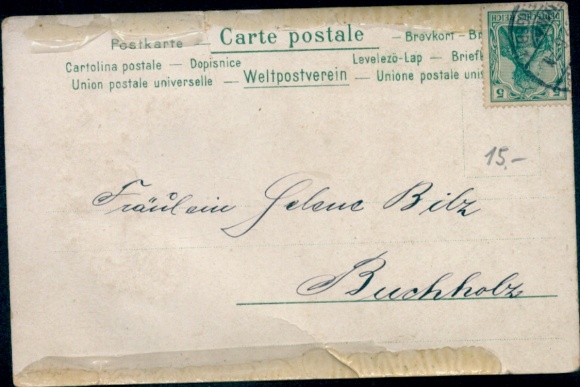 Postkarte — Carte postale — Brevkort — Br
Cartolina postale — Dopisnice Levelezö-Lap — Briefk
Union postale universelle — Weltpostverein — Unione postale uni
DEUTSCHES REICH
5 5
15.-
Fräulein Helene Bilz
Buchholz